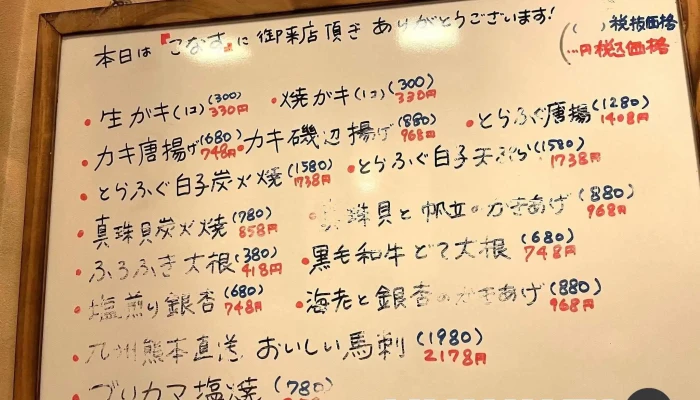 本日は『こなす』に御来店頂きありがとうございます!
( )税抜価格
…円税込価格
・生ガキ(1コ)(300) 330円 ・焼ガキ(1コ)(300) 330円
・カキ唐揚げ(680) 748円 ・カキ磯辺揚げ(880) 968円 ・とらふぐ唐揚(1280) 1408円
・とらふぐ白子炭火焼(1580) 1738円 ・とらふぐ白子天ぷら(1580) 1738円
・真珠貝炭火焼(780) 858円 ・真珠貝と帆立のかきあげ(880) 968円
・ふろふき大根(380) 418円 ・黒毛和牛どて大根(680) 748円
・塩煎り銀杏(680) 748円 ・海老と銀杏のかきあげ(880) 968円
・九州熊本直送 おいしい馬刺(1980) 2178円
・ブリカマ塩焼(780)